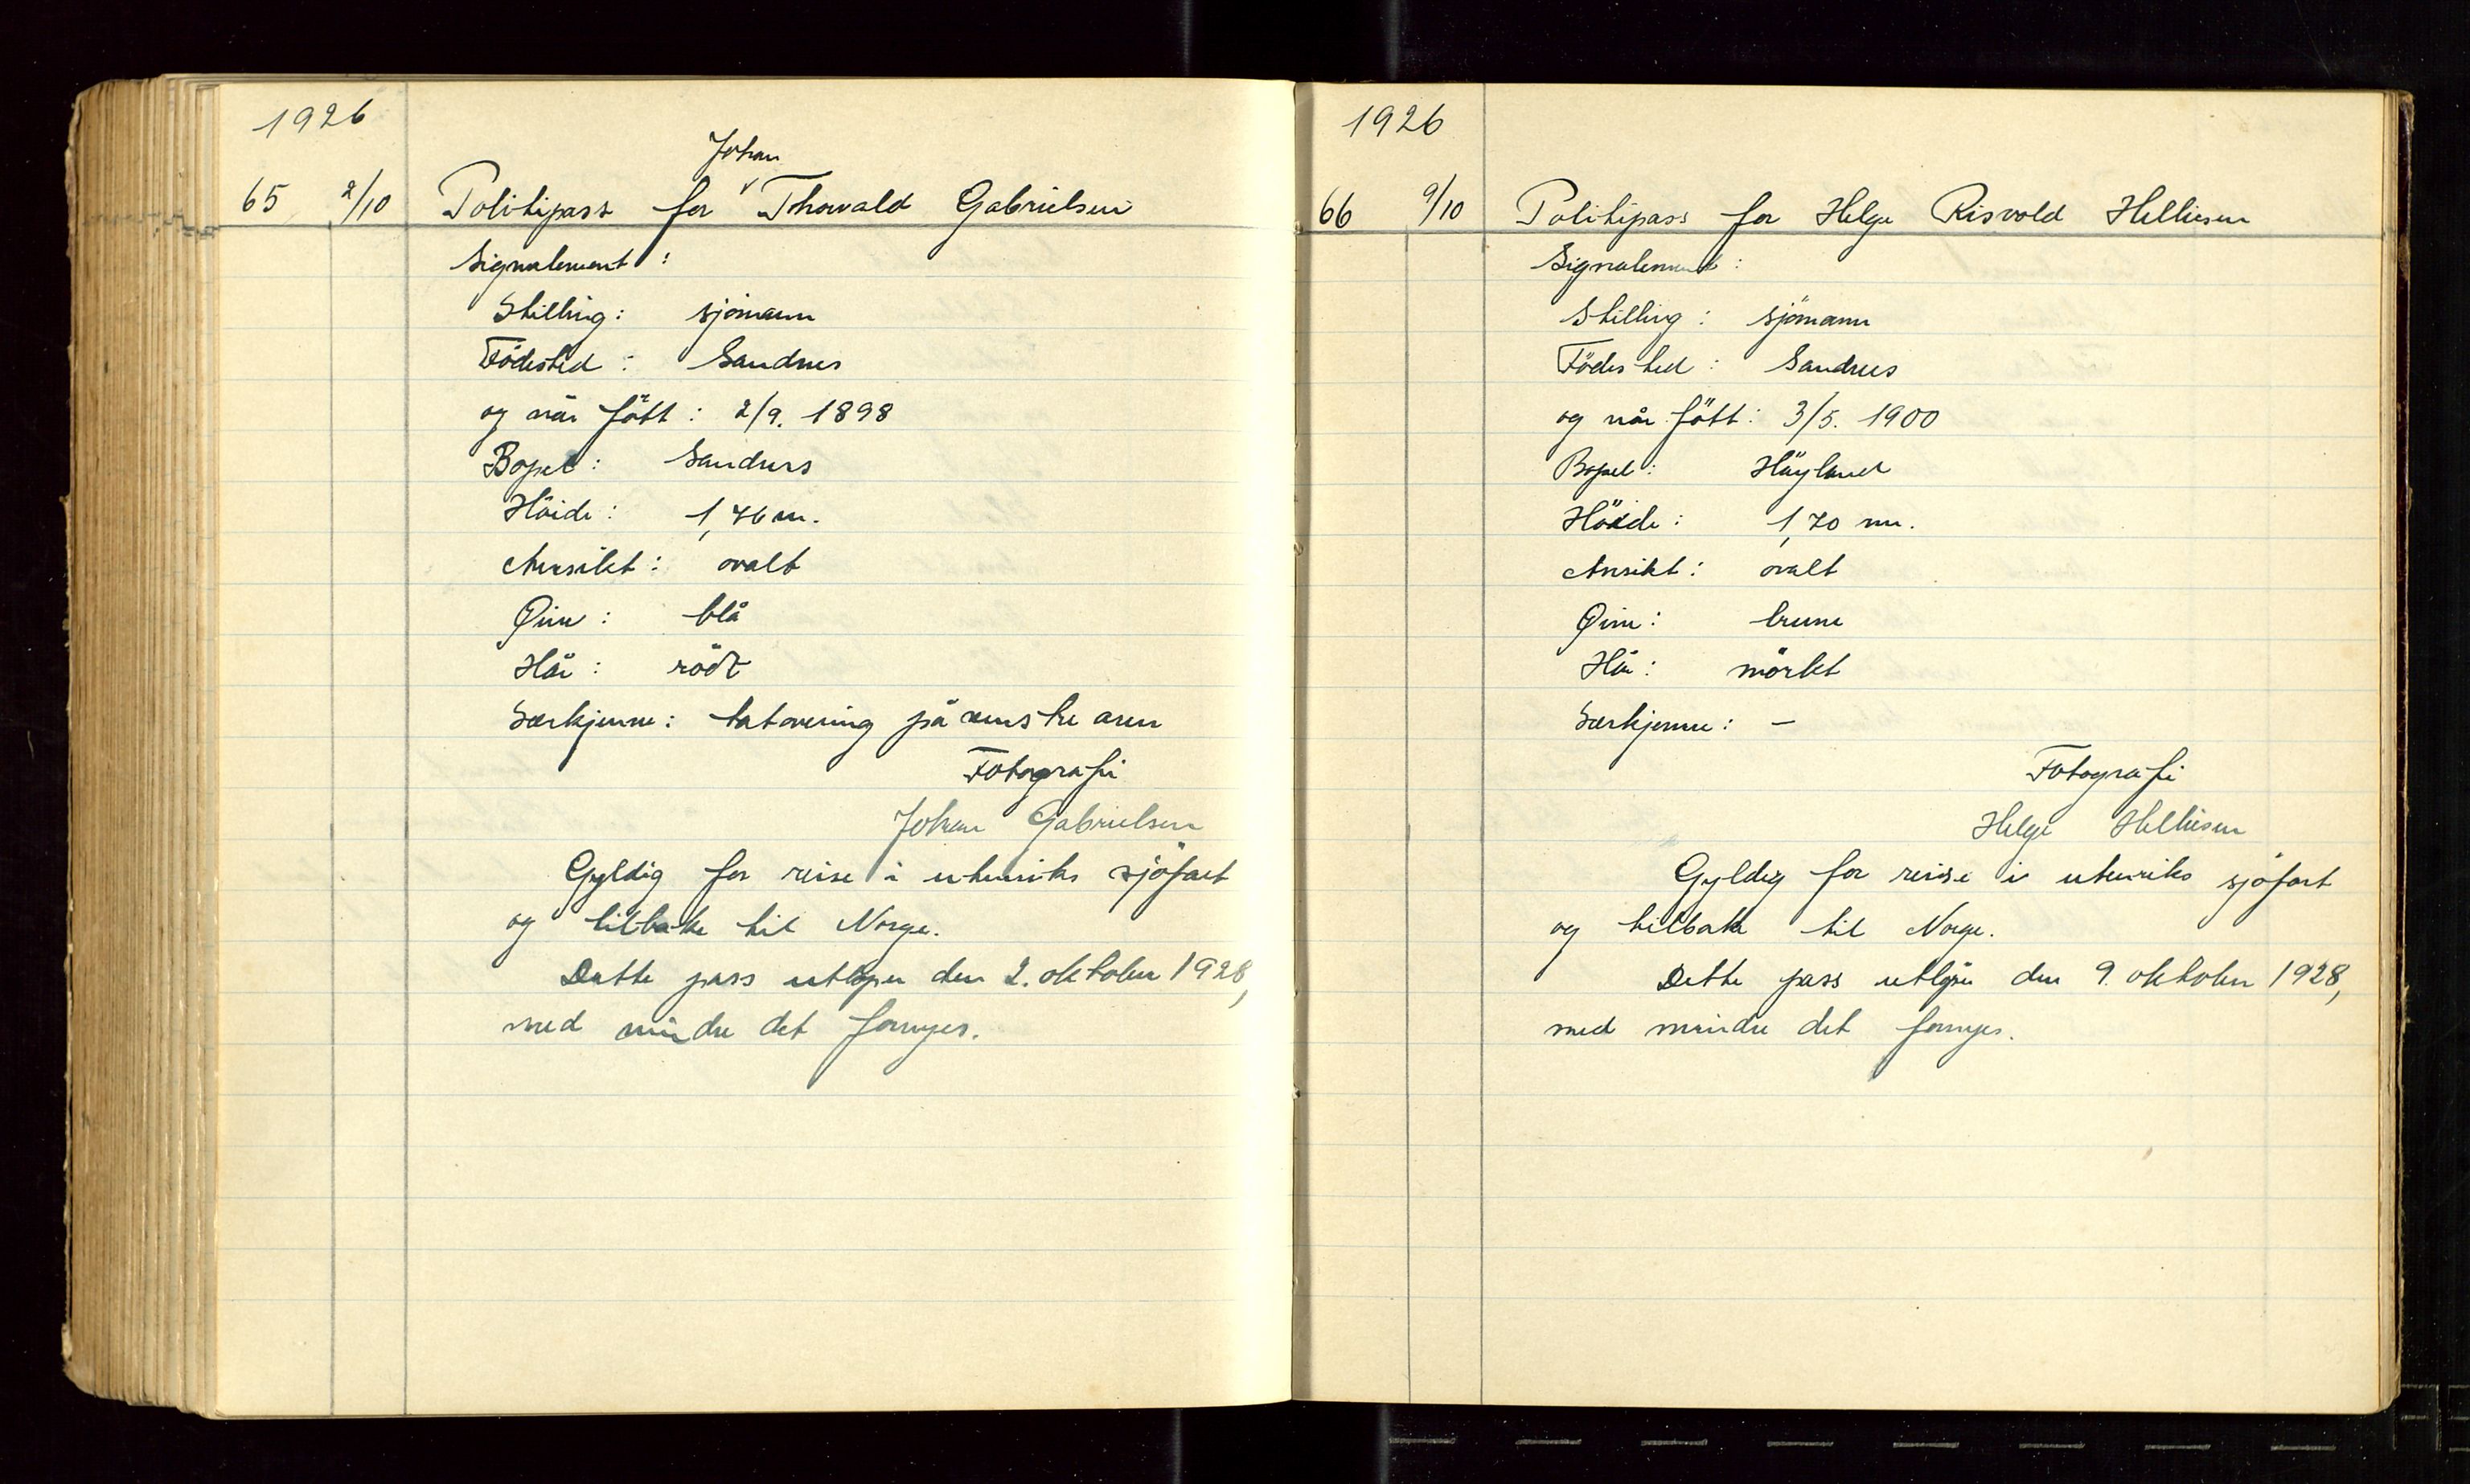 1926
Johan
65 2/10 Politipass for Thorvald Gabrielsen
Signalement:
Stilling: sjömann
Födested: Sandnes
og når fött: 2/9. 1898
Bopel: Sandnes
Höide: 1,76 m.
Ansikt: ovalt
Øine: blå
Hår: rödt
Særkjenne: tatovering på venstre arm
Fotografi
Johan Gabrielsen
Gyldig for reise i utenriks sjöfart
og tilbake til Norge.
Dette pass utløper den 2. oktober 1928,
med mindre det fornyes.
1926
66 9/10 Politipass for Helge Risvold Helliesen
Signalement:
Stilling: sjömann
Födested: Sandnes
og når fött: 3/5. 1900
Bopel: Höyland
Höide: 1,70 m.
Ansikt: ovalt
Øine: brune
Hår: mörkt
Særkjenne: –
Fotografi
Helge Helliesen
Gyldig for reise i utenriks sjöfart
og tilbake til Norge.
Dette pass utløper den 9. oktober 1928,
med mindre det fornyes.